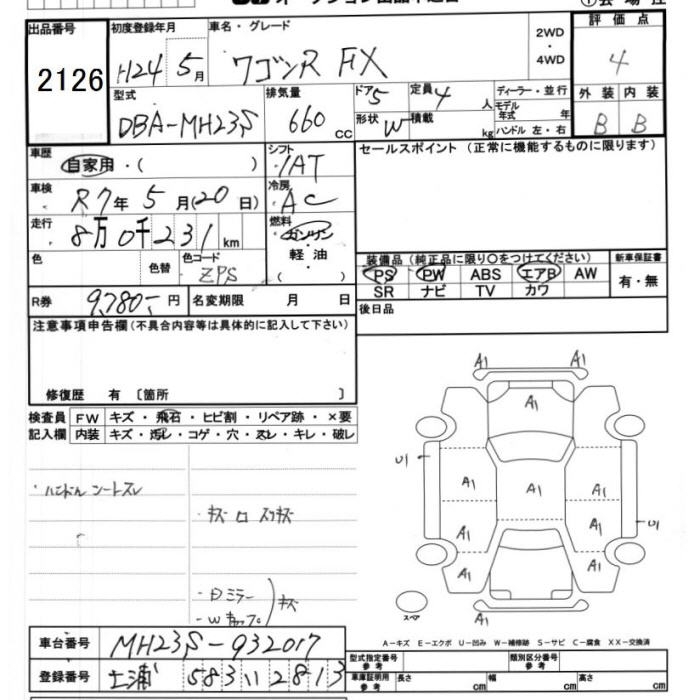 出品番号
2126
初度登録年月
H24 5月
車名・グレード
ワゴンR FX
2WD
・
4WD
評価点
4
外装 内装
B B
型式
DBA-MH23S
排気量
660 cc
ドア 5
形状 W
定員 4 人
積載 kg
ディーラー・並行
モデル年式 年
ハンドル 左・右
車歴
自家用・( )
シフト
IAT
セールスポイント (正常に機能するものに限ります)
車検
R7年 5月(20日)
冷房
AC
走行
8万0千231km
燃料
ガソリン
軽・油
( )
色
色替
色コード
ZPS
装備品 (純正品に限り○をつけてください)
PS PW ABS エアB AW
SR ナビ TV カワ
新車保証書
有・無
R券 9,780- 円
名変期限 月 日
後日品
注意事項申告欄(不具合内容等は具体的に記入して下さい)
修復歴 有 〔箇所 〕
検査員
記入欄
FW キズ・飛石・ヒビ割・リペア跡・×要
内装 キズ・汚レ・コゲ・穴・スレ・キレ・破レ
・ハンドル シートスレ
・キズ ロ スリキズ
・Dミラー
・Wキャップ
キズ
A1 A1
A1
U1
A1 A1 A1
A1 A1
U1
A1 A1
A1
スペア
A-キズ E-エクボ U-凹み W-補修跡 S-サビ C-腐食 XX-交換済
車台番号 MH23S-932017
登録番号 土浦 583 い 2813
型式指定番号
参考
類別区分番号
参考
車庫証明用
参考
長さ cm
幅 cm
高さ cm